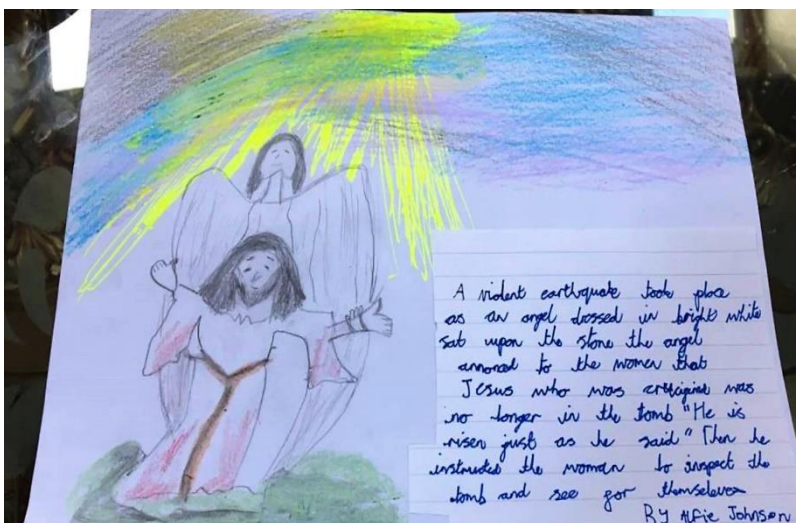 A violent earthquate took place
as an angel dressed in bright white
sat upon the stone the angel
annonced to the women that
Jesus who was was
no longer in the tomb "He is
risen just as he said" Then he
instructed the woman to inspect the
tomb and see for themseleves
By Alfie Johnson